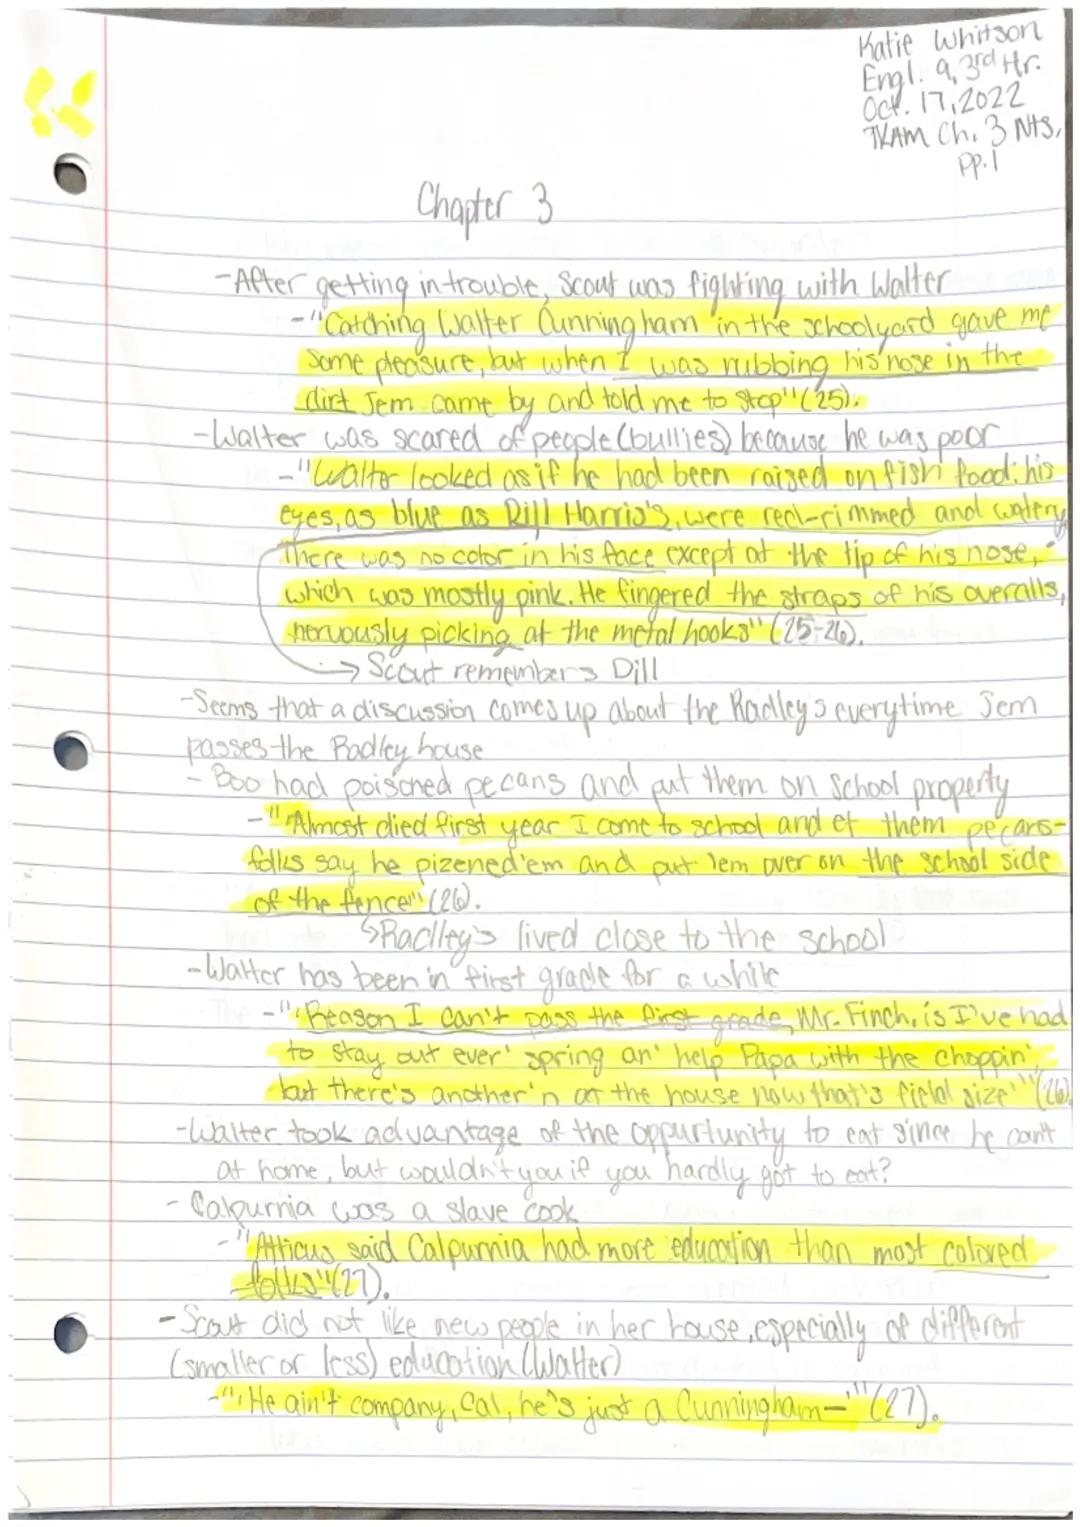 Katie Whitson
Engl. 9, 3rd Hr.
Oct. 17, 2022
TKAM Ch. 3 Nts,
pp. 1
Chapter 3
-After getting in trouble, Scout was fighting with Walter
-"Catching Walter Cunningham in the schoolyard gave me
some pleasure, but when I was rubbing his nose in the
dirt Jem came by and told me to stop" (25).
-Walter was scared of people (bullies) because he was poor
-"Walter looked as if he had been raised on fish food: his
eyes, as blue as Dill Harris's, were red-rimmed and watery.
There was no color in his face except at the tip of his nose,
which was mostly pink. He fingered the straps of his overalls,
nervously picking at the metal hooks" (25-26).
→ Scout remembers Dill
-Seems that a discussion comes up about the Radley's everytime Jem
passes the Radley house
- Boo had poisoned pecans and put them on school property
-"Almost died first year I come to school and et them pecans-
folks say he pizened 'em and put 'em over on the school side
of the fence" (26).
↳Radlley's lived close to the school
-Walter has been in first grade for a while
-"'Reason I can't pass the first grade, Mr. Finch, is I've had
to stay out ever' spring an' help Papa with the choppin',
but there's another'n at the house now that's field size'" (26).
-Walter took advantage of the oppurtunity to eat since he can't
at home, but wouldn't you if you hardly got to eat?
- Calpurnia was a slave cook
-"Atticus said Calpurnia had more education than most colored
folks" (27).
- Scout did not like new people in her house, especially of different
(smaller or less) education (Walter)
-"'He ain't company, Cal, he's just a Cunningham-'" (27).